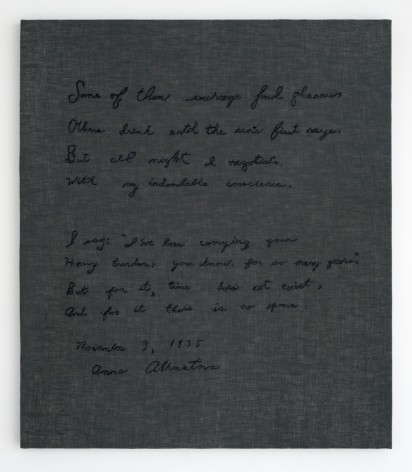 Some of them exchange fond glances
Others drink until the sun's first rays
But all night I negotiate
With my indomitable conscience.
I say: "I've been carrying your
Heavy burden, you know, for so many years".
But for it, time does not exist,
And for it there is no space.
November 3, 1935
Anna Akhmatova